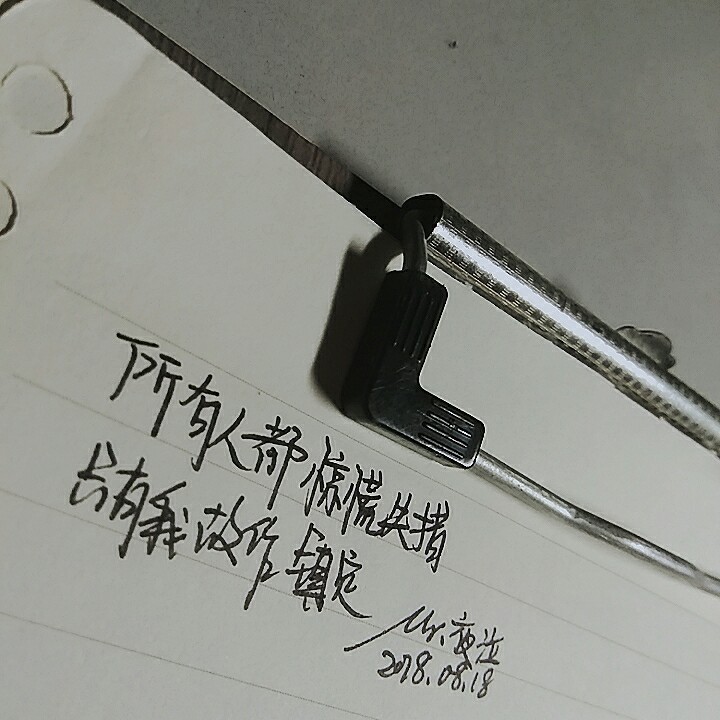 所有人都惊慌失措
只有我故作镇定
Mr.夜泣
2018.08.18